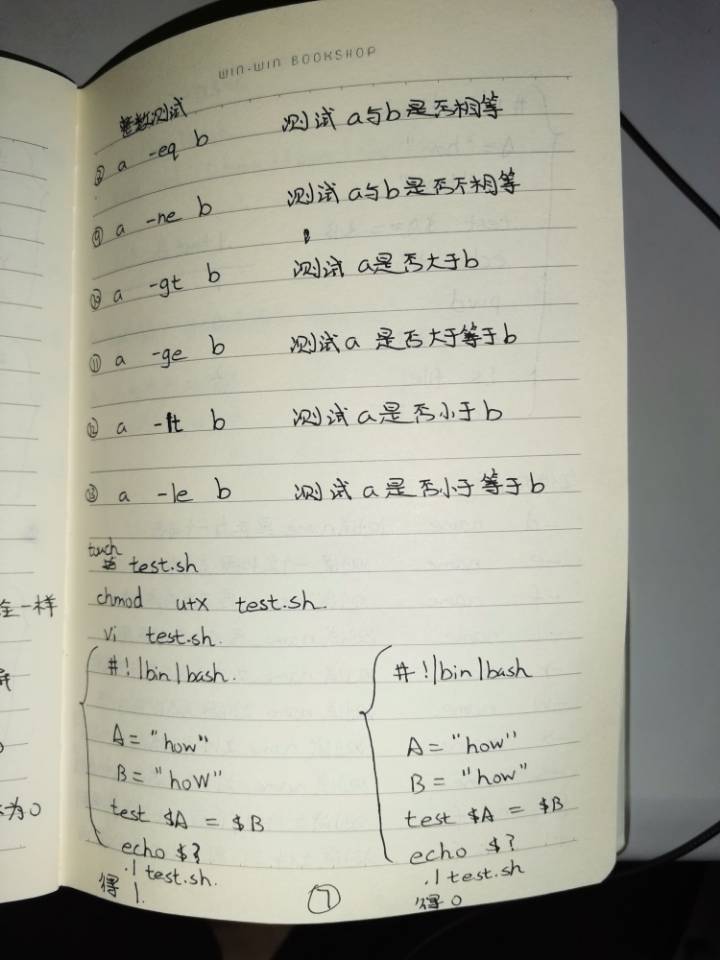 WIN-WIN BOOKSHOP
整数测试
⑧ a -eq b 测试 a与b是否相等
⑨ a -ne b 测试 a与b是否不相等
⑩ a -gt b 测试 a是否大于b
⑪ a -ge b 测试 a 是否大于等于b
⑫ a -lt b 测试 a是否小于b
⑬ a -le b 测试 a是否小于等于b
test.sh
chmod u+x test.sh.
vi test.sh.
#!|bin|bash.
A="how"
B="hoW"
test $A = $B
echo $?
.| test.sh.
得 1.
#!|bin|bash
A="how"
B="how"
test $A = $B
echo $?
.| test.sh
得 0
⑦
一样
为0